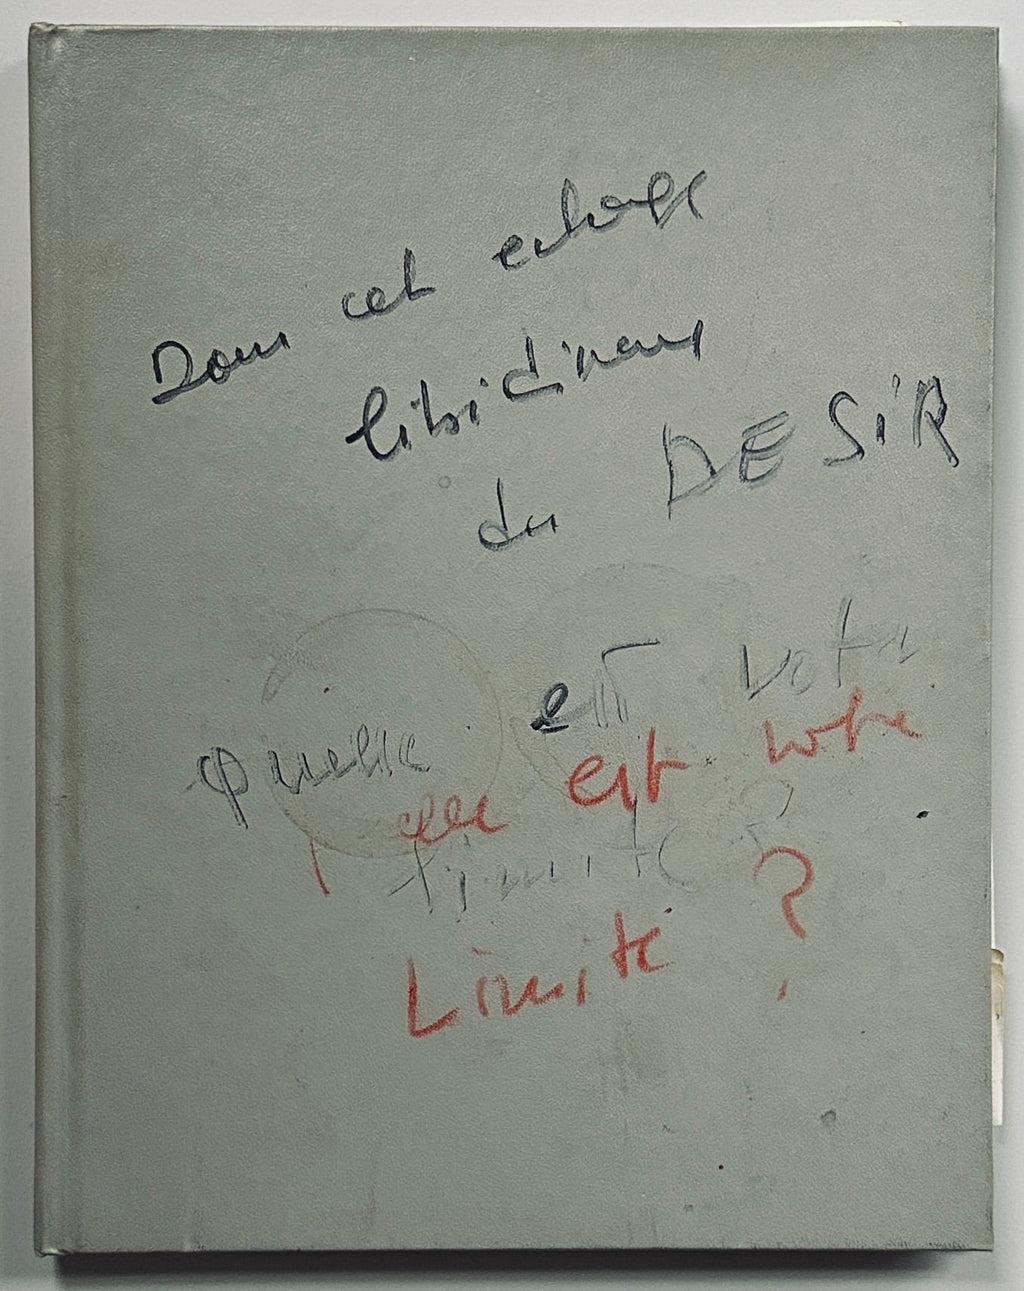 Dans cet echange
libidineux
du DESIR
Quelle est votre
elle est votre
Limite ?
Limite ?